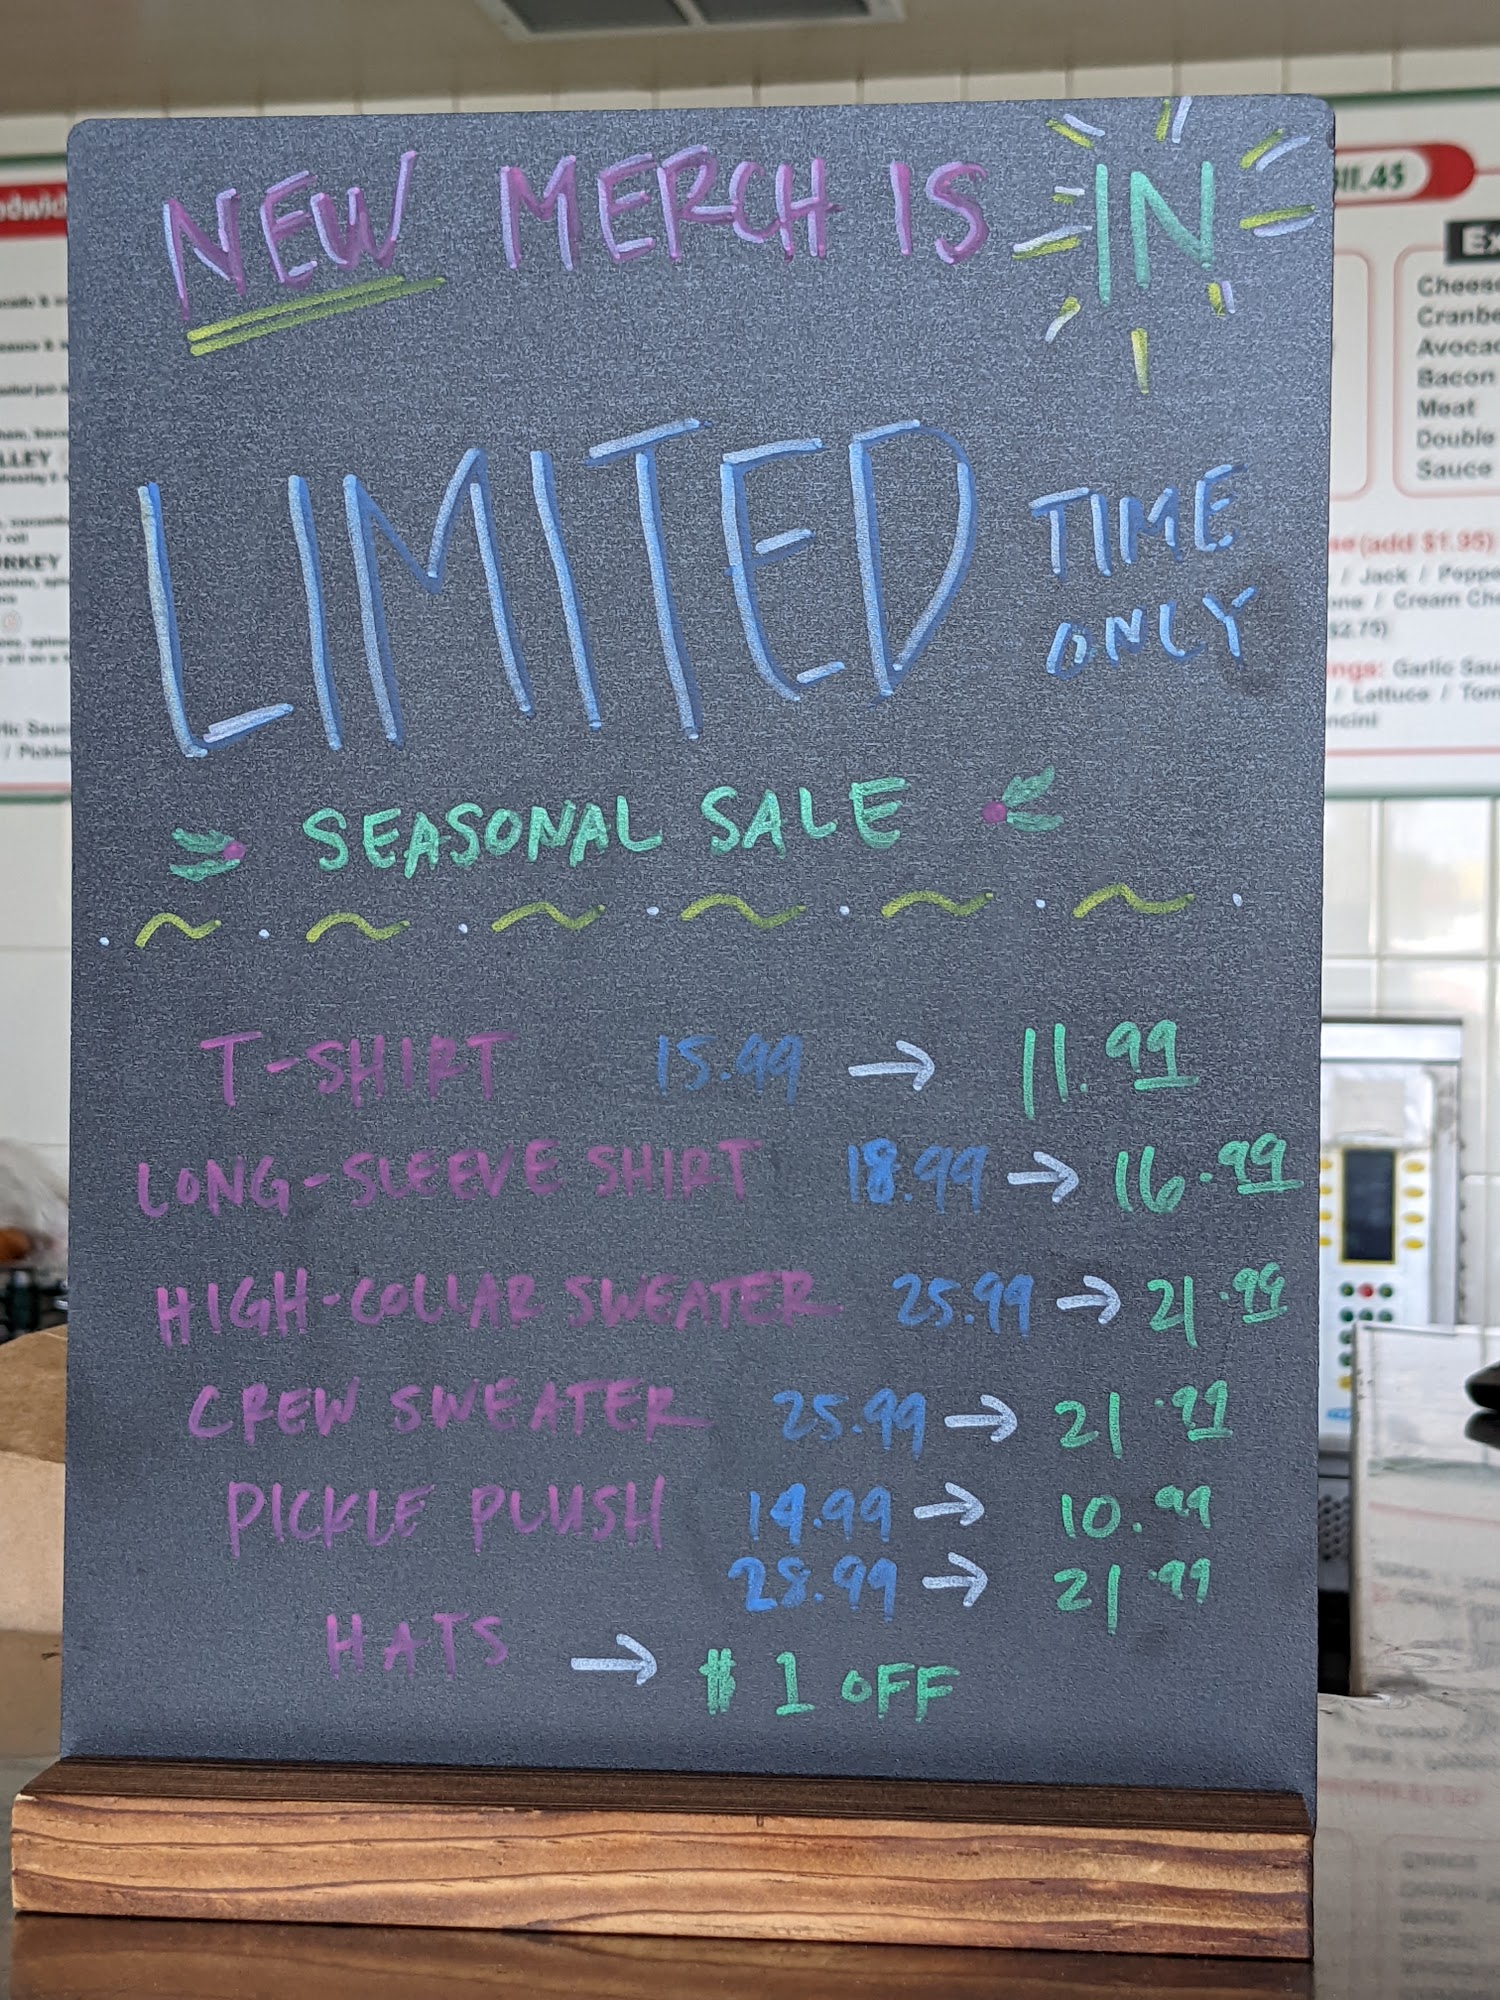 NEW MERCH IS IN
LIMITED TIME ONLY
SEASONAL SALE
T-SHIRT 15.99 → 11.99
LONG-SLEEVE SHIRT 18.99 → 16.99
HIGH-COLLAR SWEATER 25.99 → 21.99
CREW SWEATER 25.99 → 21.99
PICKLE PLUSH 14.99 → 10.99
28.99 → 21.99
HATS → $1 OFF
11.45
Ex
Cheese
Cranbe
Avocad
Bacon
Meat
Double
Sauce
(add $1.95)
/ Jack / Peppe
/ Cream Che
$2.75)
ngs: Garlic Sau
/ Lettuce / Tom
ncini
dwich
LLEY
RKEY
rlic Sauc
/ Pickle